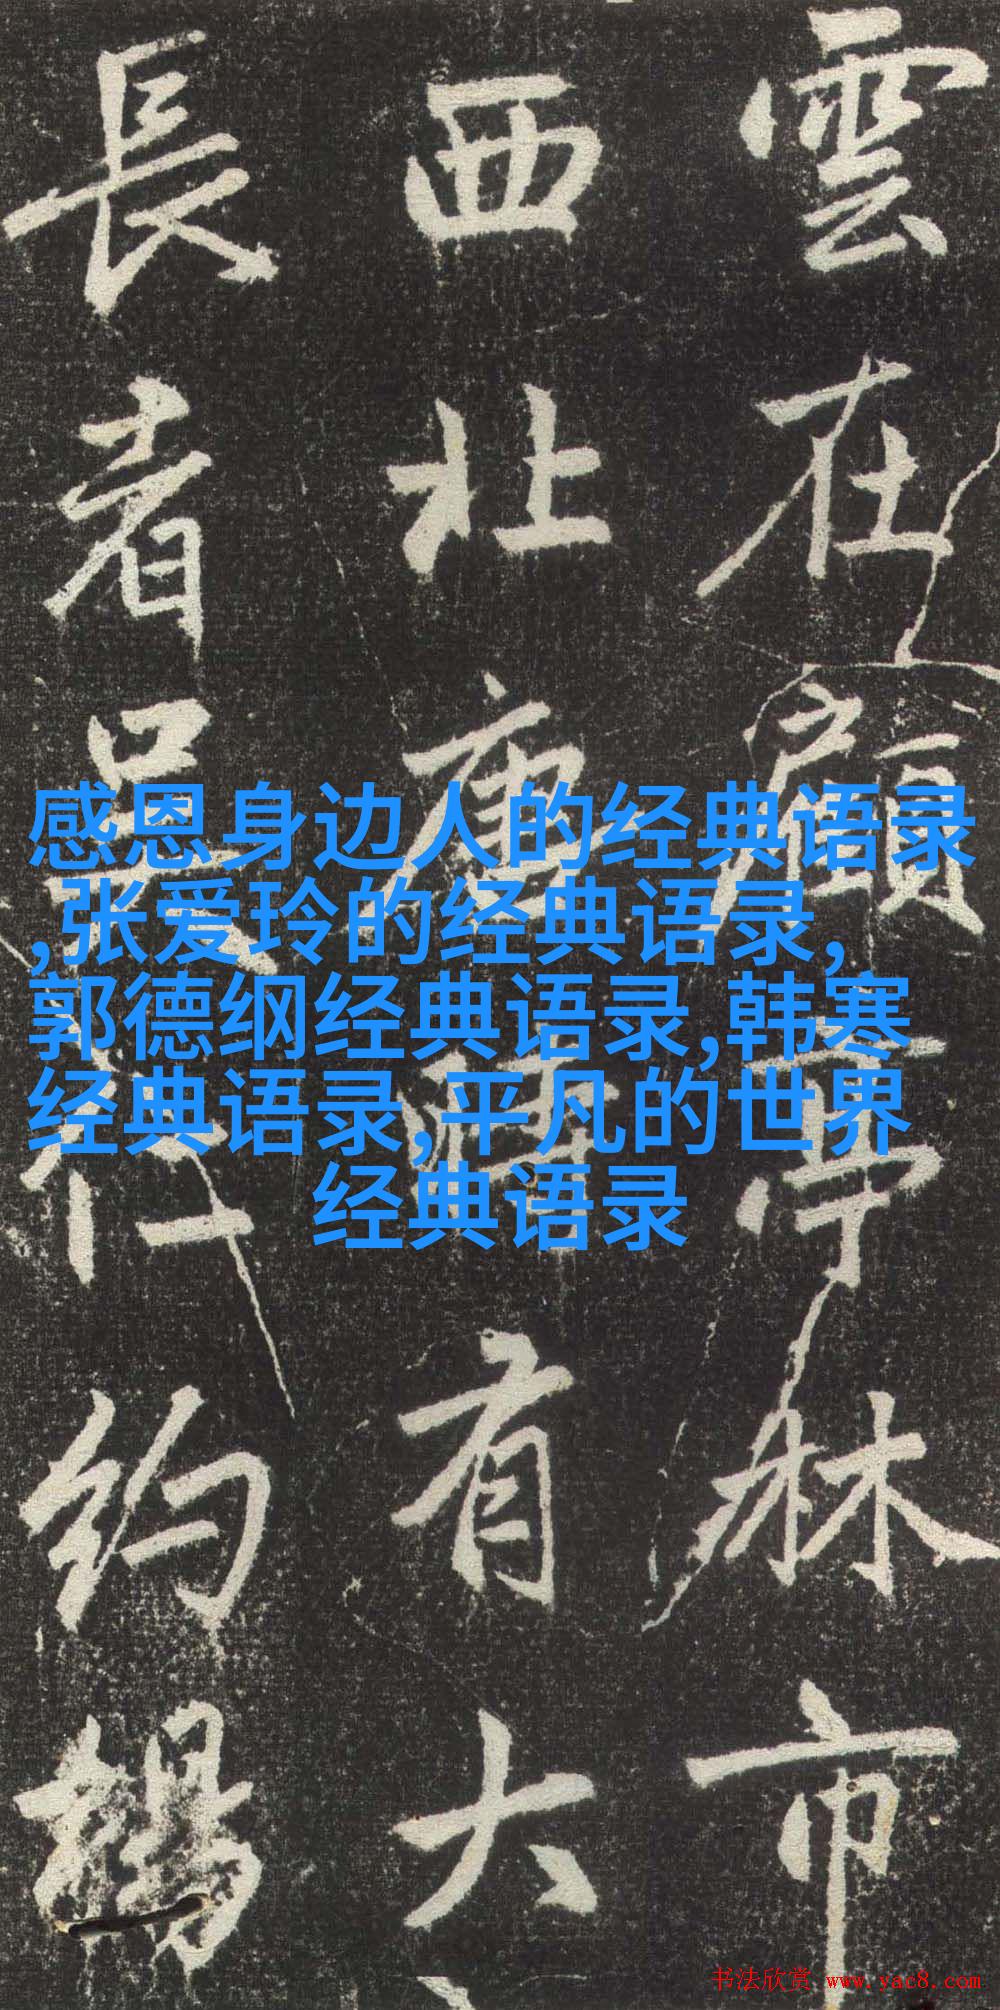 雲在顧亭林市
西北唐有大
長者吳約
感恩身边人的经典语录
,张爱玲的经典语录,
郭德纲经典语录,韩寒
经典语录,平凡的世界
经典语录
书法欣赏 www.yac8.com